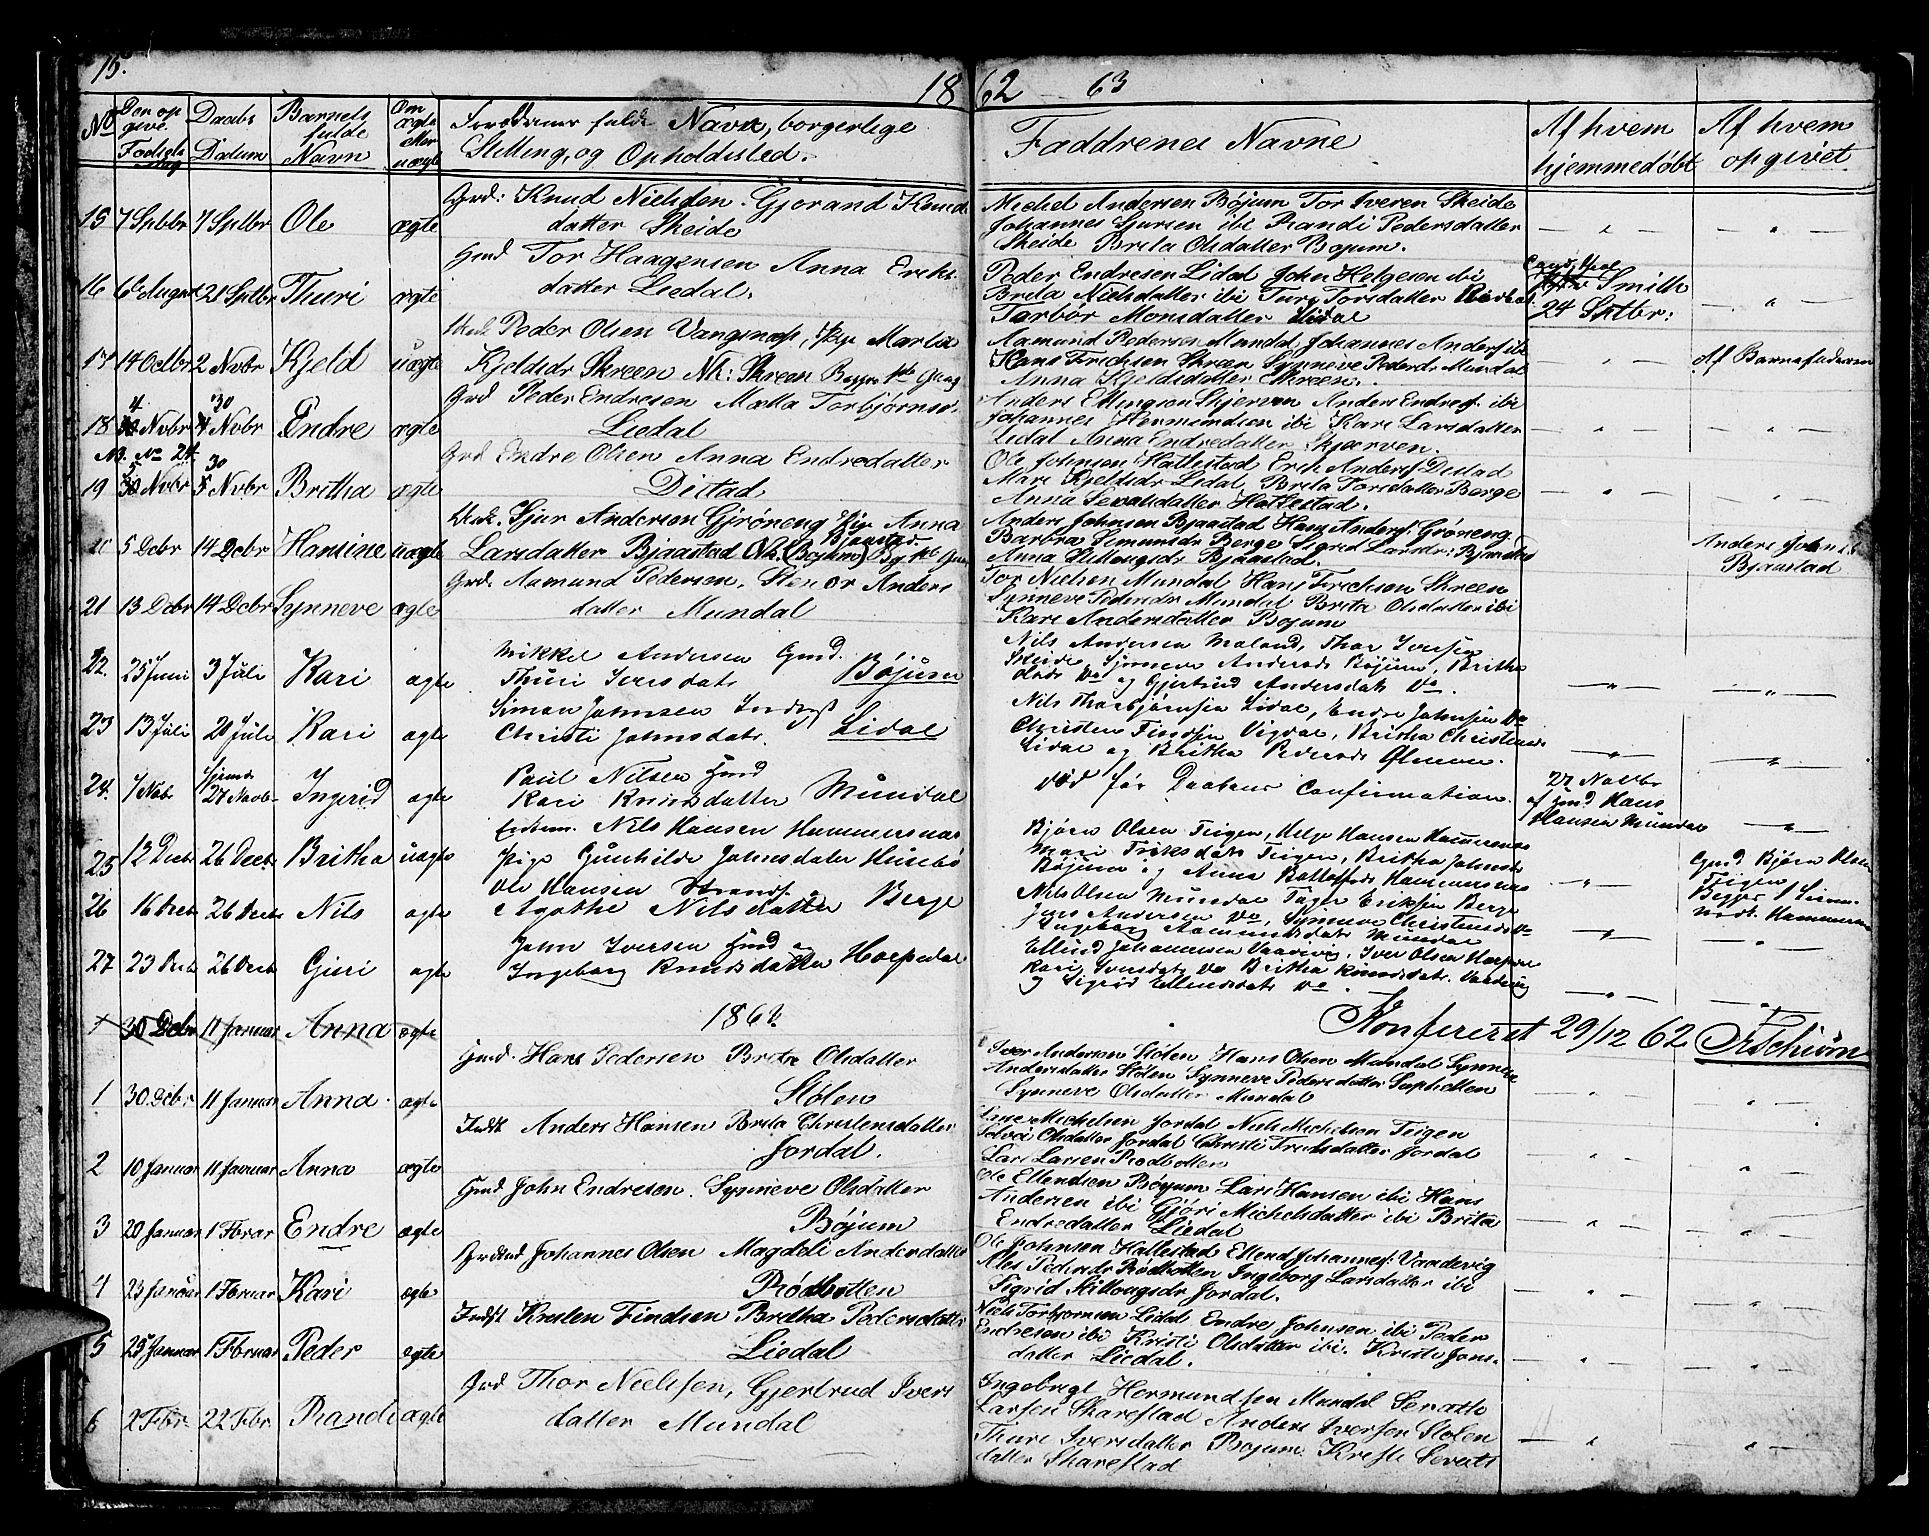 15.
18 62 63
No
Den op give. Fødsels Dag
Daabs Datum
Barnets fulde Navn
Om ægte eller uægte
Forældrenes fulde Navn, borgerlige Stilling, og Opholdssted.
Faddrenes Navne
Af hvem hjemmedøbt
Af hvem opgivet
15 7 Sptbr 7 Sptbr Ole ægte
Grd: Knud Nielsen Gjorand Knuds
datter Skeide
Michel Andersen Bøjum Tor Iversen Skeide
Johannes Sjursen ibi Randi Pedersdatter
Skeide Brita Olsdatter Bojum.
16 6te August 21 Sptbr Thuri ægte
Gmd Tor Haagensen Anna Eriks
datter Liedal.
Peder Endresen Lidal John Helgesen ibi
Brita Nielsdatter ibi Turi Torsdatter
Torbor Monsdatter Lidal
Smith
24 Sptbr:
17 14 Octbr 2 Nvbr Kjeld uægte
Peder Olsen Vangsnæs, Pige Martha
Kjeldsdr Skreen Nk: Skreen
Aamund Pedersen Mundal Johannes Anders ibi
Hans Erichsen Skreen Synneve Pedersdr Mundal
Anna Kjeldsdatter Skreen.
Af Barnefaderen
18 4 Nvbr 30 Nvbr Endre ægte
Grd Peder Endresen Motta Torbjørnsd.
Liedal
Anders Ellingsen Skjerven Anders Endres. ibi
Johannes Hermundsen ibi Kari Larsdatter
Lidal Anna Endredatter Skjerven.
NB. No 24.
19 5 Nvbr 30 Nvbr Britha ægte
Grd Endre Olsen Anna Endredatter
Distad
Ole Johnsen Hallestad Erik Anders. Distad
Mari Kjeldsdr Lidal Brita Torsdatter Berge
Anna Sevatsdatter Hallestad.
20 5 Decbr 14 Decbr Hansine uægte
Sjur Andersen Gjrøneng Pige Anna
Larsdatter Bjaastad
Anders Johnsen Bjaastad Hans Anders. Grøneng
Barbra Simunsdr Berge Sigrid Larsdr: Bjaastad
Anna Bjaastad.
Anders Johns
Bjaastad
21 13 Decbr 14 Decbr Synneve ægte
Grd. Aamund Pedersen, Stenor Anders
datter Mundal
Tor Nielsen Mundal Hans Erichsen Skreen
Synneve Pedersdr Mundal Brita Olsdatter ibi
Kari Andersdatter Bojum
22. 25 Juni 3 Juli Kari ægte
Mikkel Andersen Gmd.
Thuri Iversdatr Bøjum
Nils Andersen Moland, Thor Iversen
Skeide, Synneve Andersd. Bøjum, Britha
Olsdr Do og Gjertrud Andersdatr Do.
23 13 Juli 20 Juli Kari ægte
Simon Johnsen Inderst
Christi Johnsdatr. Lidal
Nils Thorbjørnsen Lidal, Endre Johnsen Do
Christen Findsen Vigdal, Britha Christens
Lidal og Britha Pedersd.
24. 7 Nobr 27 Novbr Ingerid ægte
Paul Nilsen Gmd
Kari Knudsdatter Mundal
Død før Daabens Confirmation.
27 Novbr
af Gmd. Hans
Hansen Mundal
25 12 Decbr 26 Decbr Britha uægte
Nils Hansen Hammersnæs
Pige Gunhilde Johnsdatter Husebø
Bjørn Olsen Teigen, Helge Hansen Hammersnæs
Mari Eriksdatr Teigen, Britha Johnsdr
Bøjum og Anna Hammersnæs
Gmd. Bjørn Olsen
Teigen
26 16 Decbr 26 Decbr Nils ægte
Ole Hansen Strand.
Agathe Nilsdatter Berge
Nils Olsen Mundal Eriksen Berge
Jens Andersen Do, Synneve Christensdr Do
Ingeborg Aamundsdatr Mundal
27 23 Decbr 26 Decbr Guri ægte
John Iversen Gmd og
Ingeborg Knudsdatter Horpedal
Ellind Johannessen Vaarvig, Iver Olsen Horpedal
Kari Iversdatr Do Britha Knudsdatr. Vaadevig
og Sigrid Ellindsdatr Do.
1863.
1 30 Decbr 11 Januar Anna ægte
Konfereret 29/12 62. FSchiørn
1 30 Decbr 11 Januar Anna ægte
Gmd. Hans Pedersen Brita Olsdatter
Stølen
Iver Andersen Stølen Hans Olsen Mundal Synneve
Andersdatter Stølen Synneve Pedersdatter
Synneve Olsdatter Mundal
2 10 Januar 11 Januar Anna ægte
Indst Anders Hansen Brita Christensdatter
Jordal.
Michelsen Jordal Niels Michelsen Teigen
Olsdatter Jordal Christi Eriksdatter Jordal
Lars Larsen Rødbotten
3 20 Januar 1 Fbruar Endre ægte
Gmd John Endresen. Synneve Olsdatter
Bøjum
Ole Ellendsen Bøyum Lars Hansen ibi Hans
Andersen ibi Gjøri Michelsdatter ibi Brita
Endredatter Liedal
4 23 Januar 1 Fbruar Kari ægte
Johannes Olsen Magdeli Andersdatter
Rødbotten
Ole Johnsen Hallestad Ellend Johannes. Vaadevig
Ales Pedersdr Rødbotten Ingeborg Larsdatter ibi
Sigrid Jordal.
5 25 Januar 1 Fbruar Peder ægte
Indst Kresten Findsen Bretha Pedersdatter
Liedal
Niels Torbjornsen Lidal Endre Johnsen ibi Peder
Endresen ibi Kristi Olsdatter ibi. Kristi Jons-
datter Liedal.
6 2 Fbr. 22 Fbr. Randi ægte
Grd Thor Nielsen, Gjertrud Ivers
datter Mundal
Ingebrigt Hermundsen Mundal Sevath
Larsen Skarestad Anders Iversen Stølen
Thuri Iversdatter Bojum Kristi Sevats
datter Skarestad